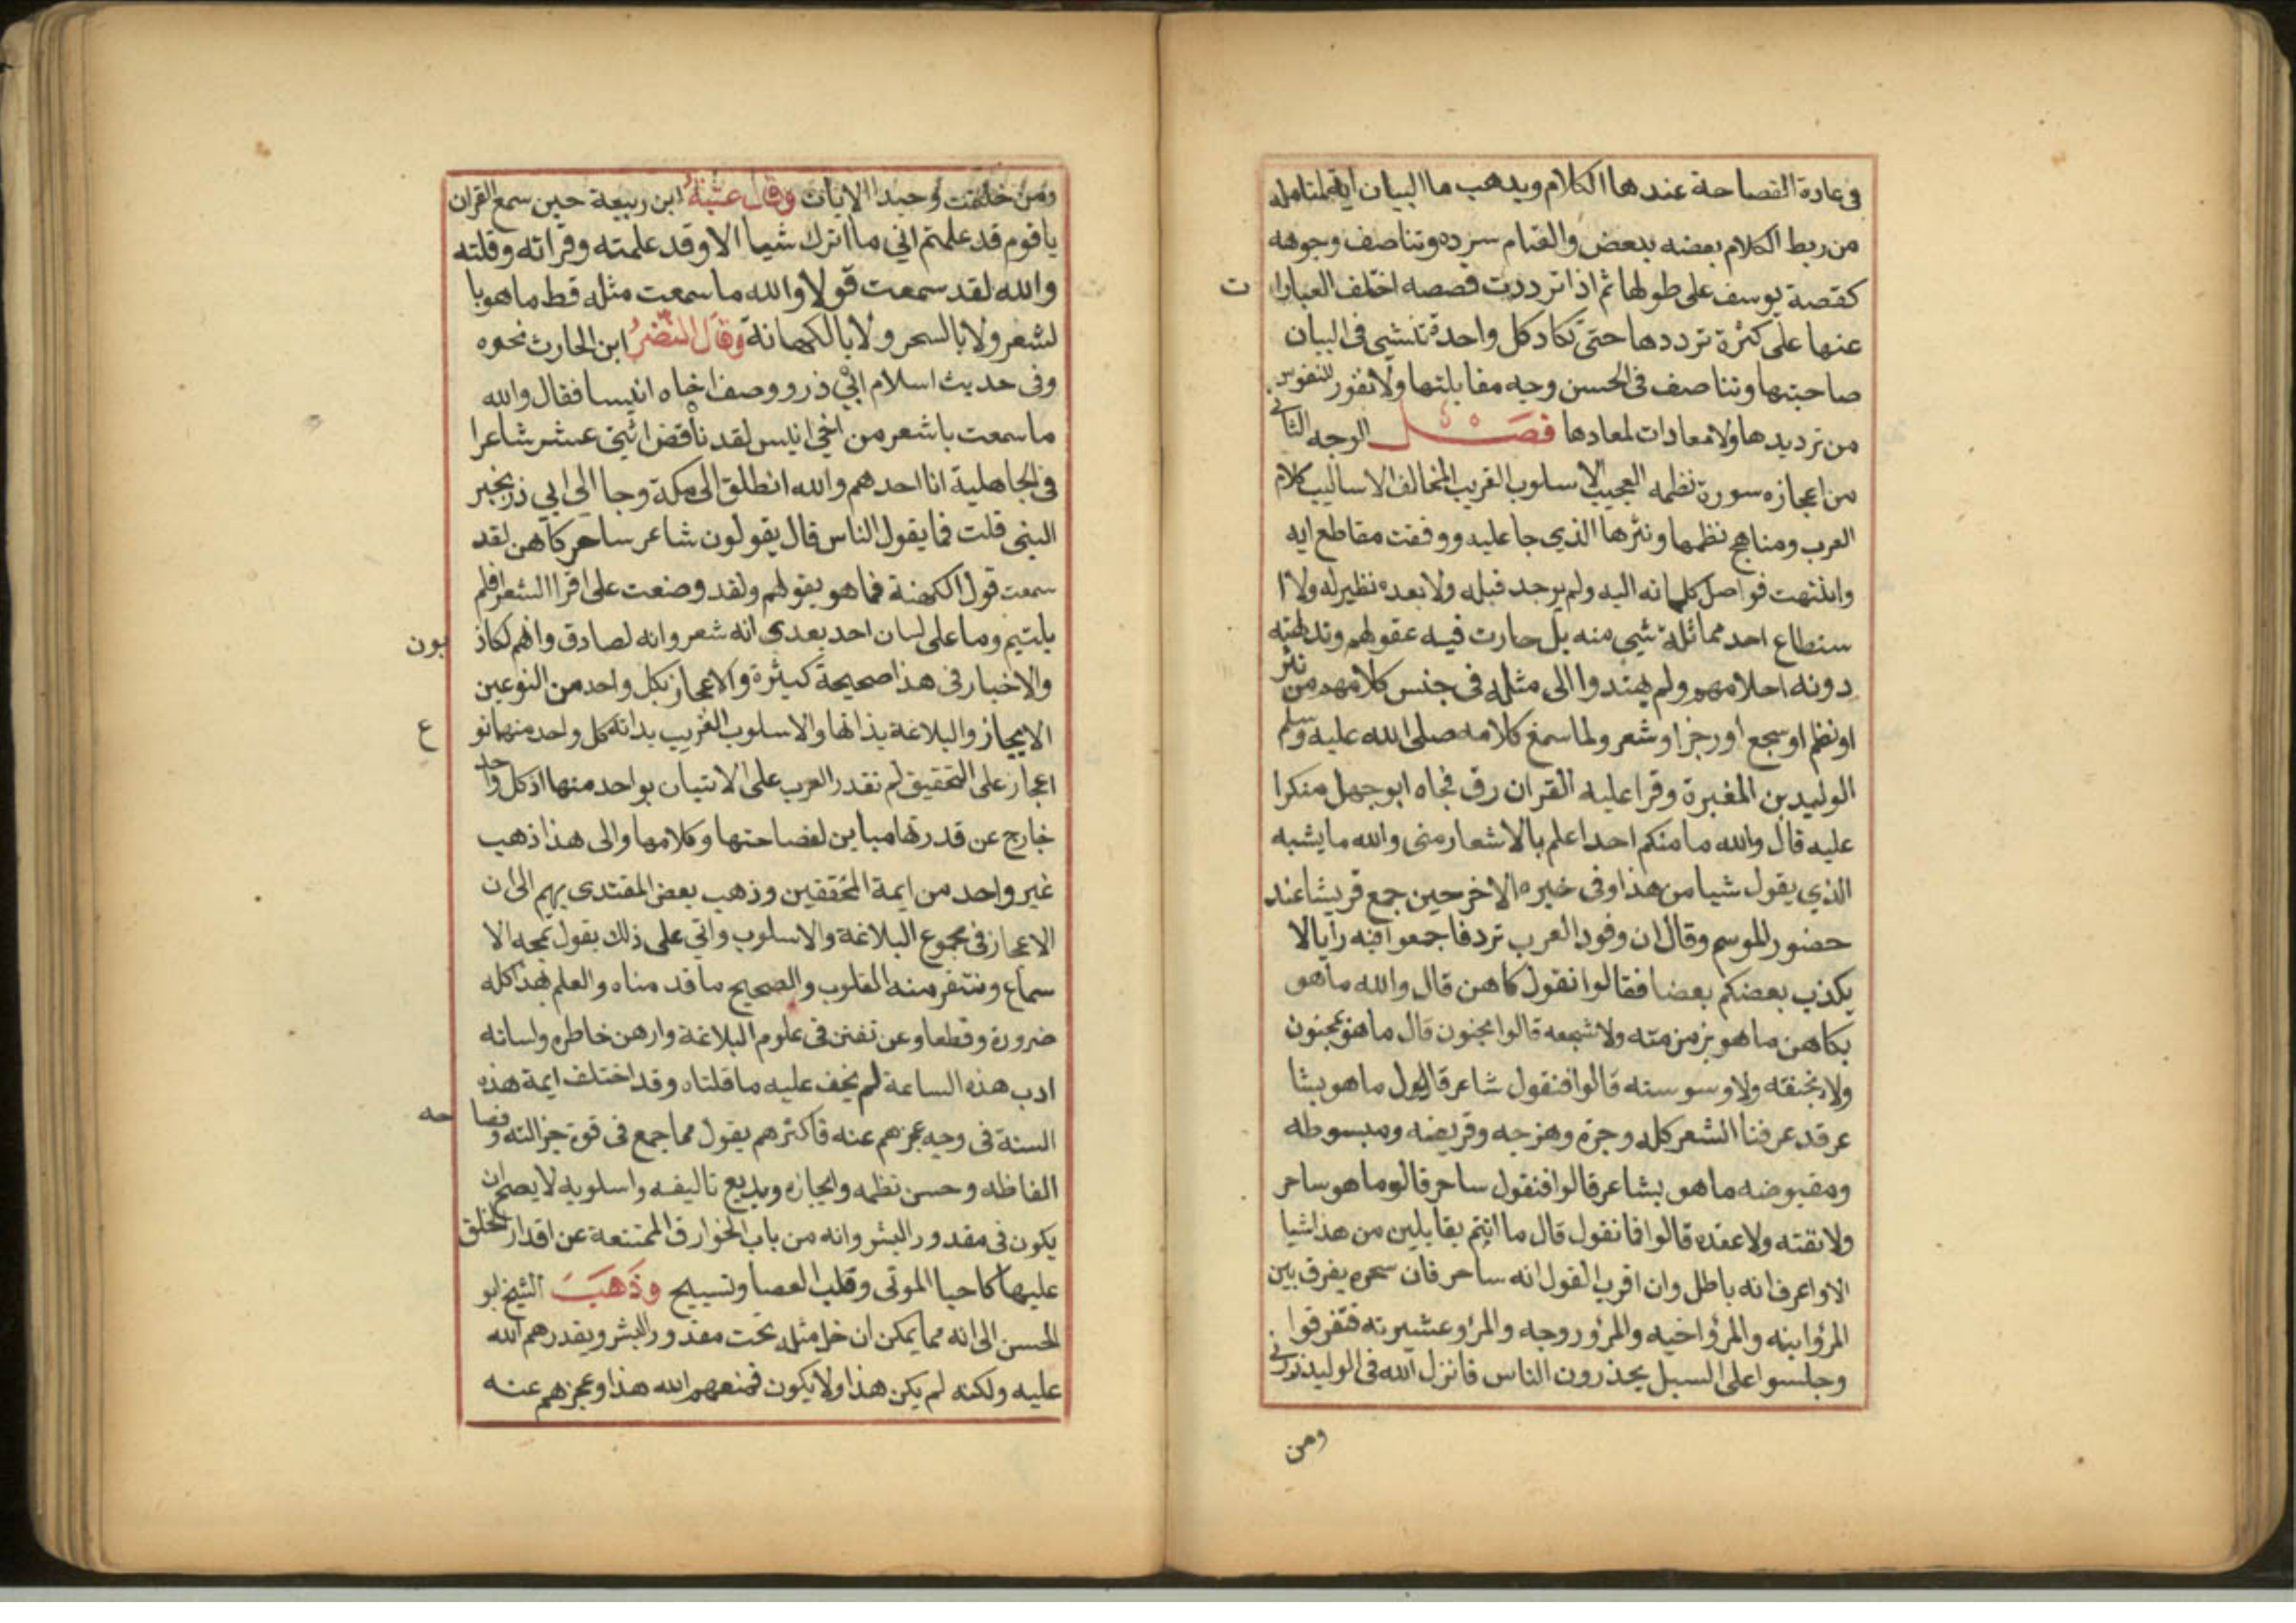 في عادة الفصاحة عندها الكلام ويذهب ما البيان اية لمتامله
من ربط الكلام بعضه ببعض والقيام سرده وتناصف وجوهه
كقصة يوسف على طولها ثم اذا ترددت قصصه اختلف العبارا ت
عنها على كثرة ترددها حتى تكاد كل واحدة تنشي في البيان
صاحبتها وتناصف في الحسن وجه مقابلتها ولا نفور للنفوس
من ترديدها ولا معادات لمعادها فصل الوجه الثاني
من اعجازه سورة نظمه العجيب الاسلوب الغريب المخالف الاساليب كلام
العرب ومناهج نظمها ونثرها الذي جا عليه ووقفت مقاطع ايه
وانتهت فواصل كلماته اليه ولم يوجد قبله ولا بعده نظير له ولا ا
ستطاع احد مماثلة شي منه بل حارت فيه عقولهم وتدلهته
دونه احلامهم ولم يهتدوا الى مثله في جنس كلامهم من نثر
او نظم او سجع او رجز او شعر ولما سمع كلامه صلى الله عليه وسلم
الوليد بن المغيرة وقرا عليه القران رق فجاه ابو جهل منكرا
عليه قال والله ما منكم احدا اعلم بالاشعار منى والله ما يشبه
الذي يقول شيا من هذا وفى خبره الاخر حين جمع قريشا عند
حضور الموسم وقال ان وفود العرب ترد فاجمعوا فيه رايا لا
يكذب بعضكم بعضا فقالوا نقول كاهن قال والله ما هو
بكاهن ما هو بزمزمته ولا سجعه قالوا مجنون قال ما هو بمجنون
ولا بخنقه ولا وسوسته قالوا فنقول شاعر قال ما هو بشا
عر قد عرفنا الشعر كله وجزه وهزجه وقريضه ومبسوطه
ومقبوضه ما هو بشاعر قالوا فنقول ساحر قالوما هو ساحر
ولا نفثه ولا عقده قالوا فما نقول قال ما انتم بقايلين من هذا شيا
الا وا عرف انه باطل وان اقرب القول انه ساحر فان سحره يفرق بين
المرؤ ابنه والمرؤ اخيه والمرؤ زوجه والمرؤ عشيرته فتفرقوا
وجلسوا على السبل يحذرون الناس فانزل الله في الوليد ذرني
ومن
ومن خلقت وحيدا الايات وقال عتبة ابن ربيعة حين سمع القران
يا قوم قد علمتم اني ما اترك شيا الا وقد علمته وقراته وقلته
والله لقد سمعت قولا والله ما سمعت مثله قط ما هو با
لشعر ولا بالسحر ولا بالكهانة وقال النضر ابن الحارث نحوه
وفى حديث اسلام ابي ذر ووصف اخاه انيسا فقال والله
ما سمعت باشعر من اخي انيس لقد ناقض اثنى عشر شاعرا
في الجاهلية انا احدهم والله انطلق الى مكة وجا الى ابي ذر بخبر
النبي قلت فما يقول الناس قال يقولون شاعر ساحر كاهن لقد
سمعت قول الكهنة فما هو بقولهم ولقد وضعت على اقرا الشعر فلم
يلتيم وما على لسان احد بعدي انه شعر وانه لصادق وانهم لكاذ بون
والاخبار في هذا صحيحة كثيرة والاعجاز بكل واحد من النوعين
الايجاز والبلاغة بذاتها والاسلوب الغريب بذاته كل واحد منهما نو ع
اعجاز على التحقيق لم تقدر العرب على الاتيان بواحد منها اذ كل واحد
خارج عن قدرتها مباين لفصاحتها وكلامها والى هذا ذهب
غير واحد من ايمة المحققين وذهب بعض المقتدى بهم الى ان
الاعجاز في مجموع البلاغة والاسلوب واتي على ذلك بقول تمجه الا
سماع وتنفر منه القلوب والصحيح ما قد مناه والعلم بهذا كله
ضرورة وقطعا وعن تفنن في علوم البلاغة وارهن خاطره ولسانه
ادب هذه الساعة لم يخف عليه ما قلناه وقد اختلف ايمة هذه
السنة في وجه عجزهم عنه فاكثرهم يقول مما جمع في قوة جزالته وفصا حه
الفاظه وحسن نظمه وايجازه وبديع تاليفه واسلوبه لا يصح ان
يكون في مقدور البشر وانه من باب الخوارق الممتنعة عن اقدار الخلق
عليها كاحيا الموتى وقلب العصا وتسبيح وذهب الشيخ ابو
الحسن الى انه مما يمكن ان خل مثله تحت مقدور البشر ويقدرهم الله
عليه ولكنه لم يكن هذا ولا يكون فمنعهم الله هذا وعجزهم عنه